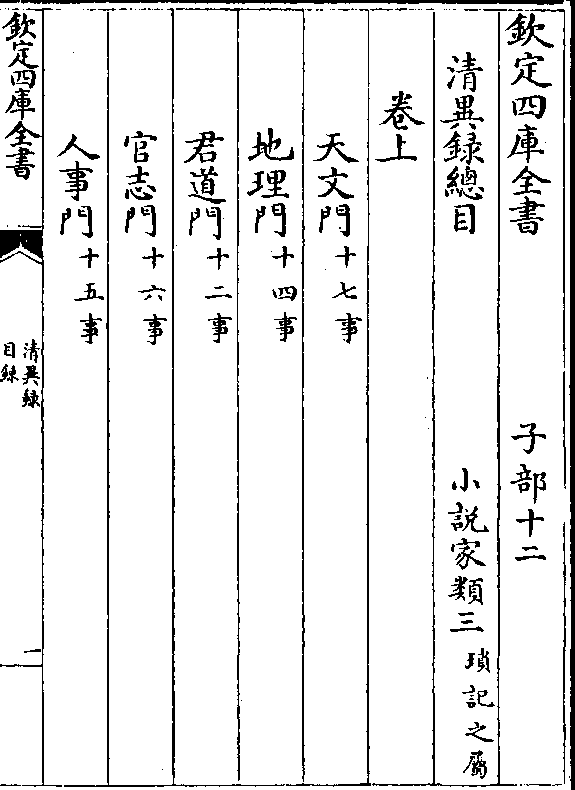 欽定四庫全書 子部十二
清異録總目 小說家類三瑣記之屬
卷上
天文門十七事
地理門十四事
君道門十二事
官志門十六事
人事門十五事
欽定四庫全書
清異録
目録
一